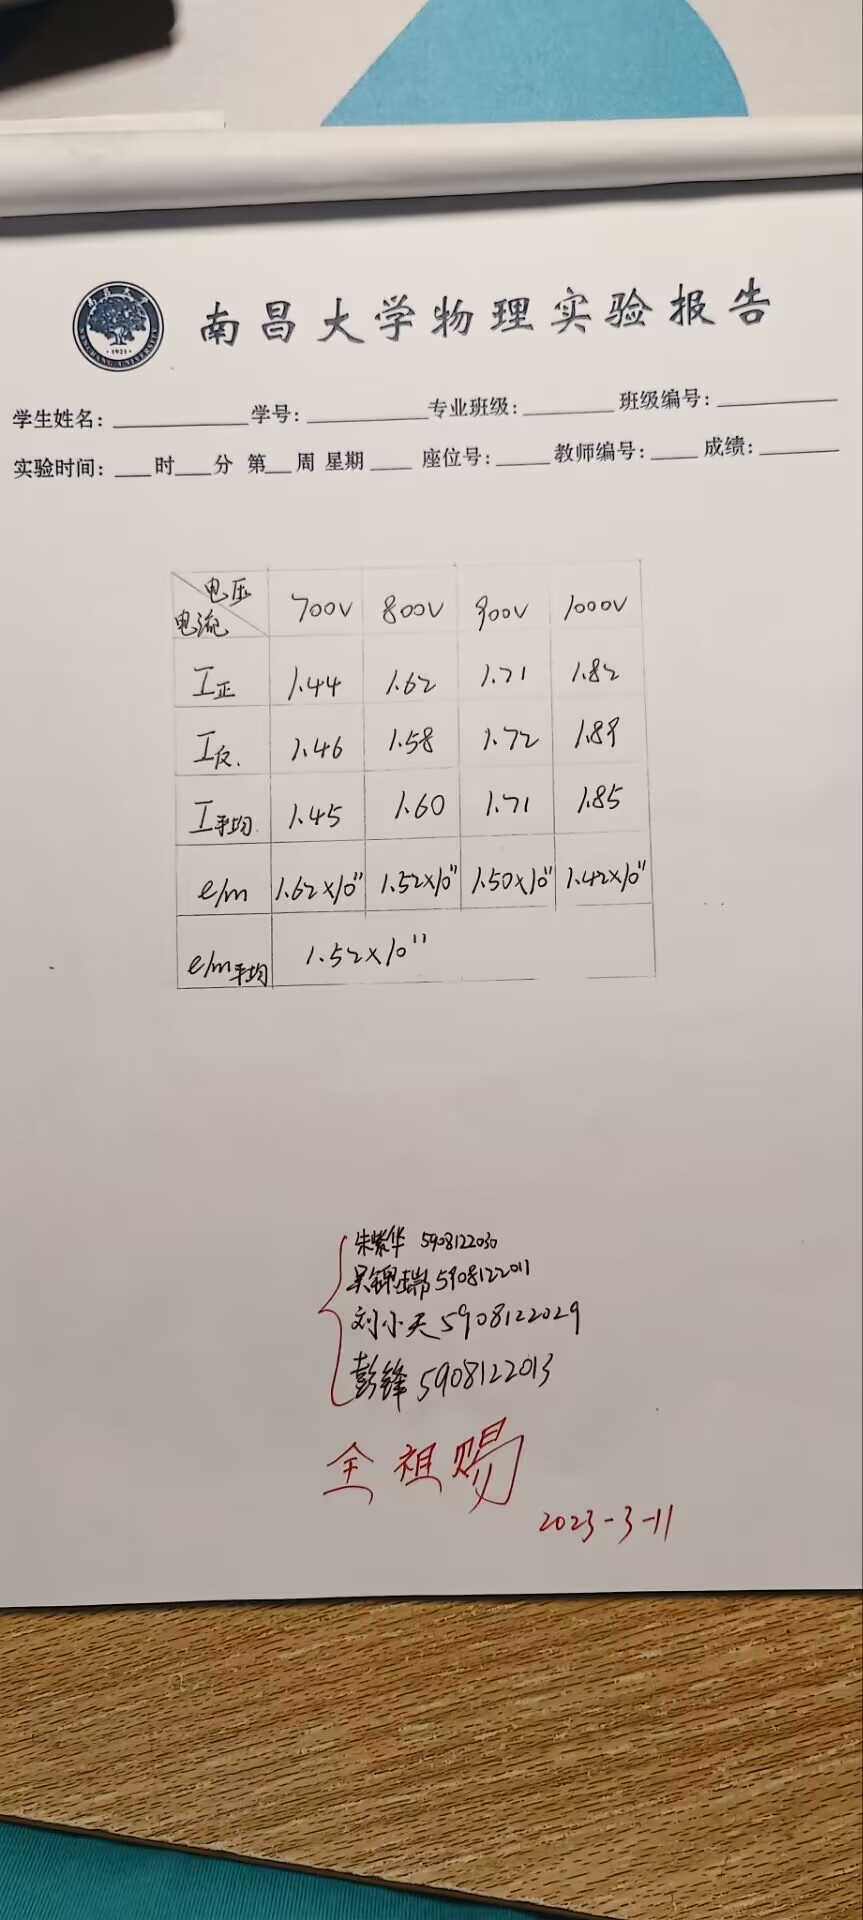 南昌大学物理实验报告
学生姓名: 学号: 专业班级: 班级编号:
实验时间: 时 分 第 周 星期 座位号: 教师编号: 成绩:
电压 700V 800V 900V 1000V
电流
I正 1.44 1.62 1.71 1.82
I反. 1.46 1.58 1.72 1.89
I平均. 1.45 1.60 1.71 1.85
e/m 1.62×10¹¹ 1.52×10¹¹ 1.50×10¹¹ 1.42×10¹¹
e/m平均 1.52×10¹¹
朱紫华 5908122030
吴锦瑞 5908122011
刘小天 5908122029
彭锋 5908122013
全祖赐
2023-3-11